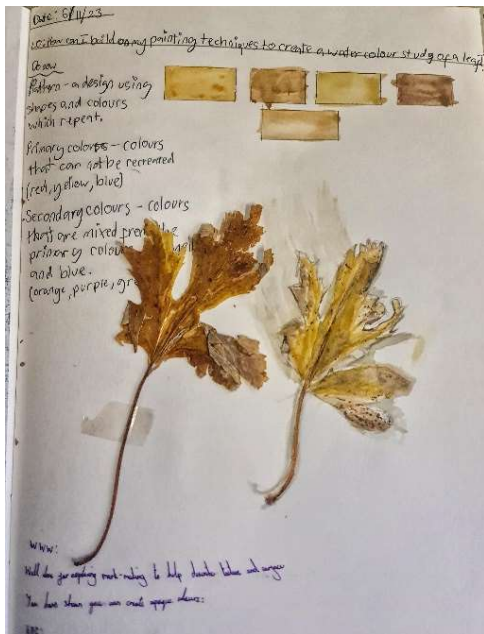 Date: 6/11/23
can I build on my painting techniques to create a watercolour study of a leaf?
Do now
Pattern - a design using
shapes and colours
which repeat.
Primary colours - colours
that can not be recreated
(red, yellow, blue)
Secondary colours - colours
that are mixed from the
primary colou
and blue.
(orange, purple, gr
WWW:
Well done for applying mark-making to help describe texture and
You have shown you can create opaque colours.